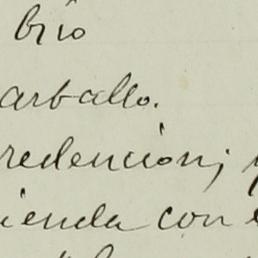 brio
arballo.
redencion; y
ienda con e